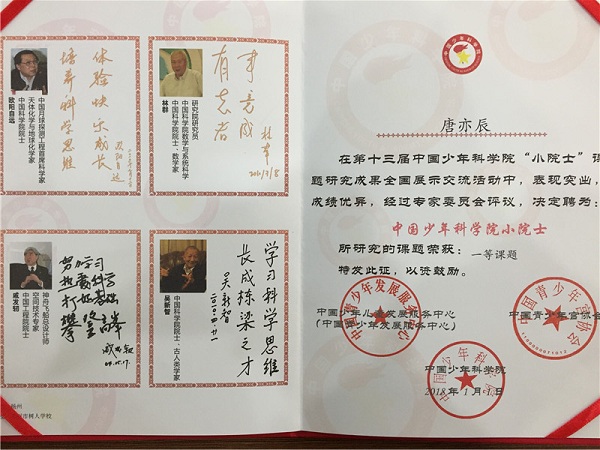 体验快乐成长
培养科学思维
欧阳自远
中国月球探测工程首席科学家
天体化学与地球化学家
中国科学院院士
欧阳自远
有志者
事竟成
林群
研究院研究员
中国科学院数学与系统科学
中国科学院院士、数学家
林群
努力学习
热爱科学
打好基础
攀登高峰
戚发轫
神舟飞船总设计师
空间技术专家
中国工程院院士
戚发轫
学习科学思维
长成栋梁之才
吴新智
中国科学院院士、古人类学家
吴新智
扬州
市树人学校
中国少年科学院
唐亦辰
在第十三届中国少年科学院“小院士”课
题研究成果全国展示交流活动中，表现突出，
成绩优异，经过专家委员会评议，决定聘为：
中国少年科学院小院士
所研究的课题荣获：一等课题
特发此证，以资鼓励。
中国少年儿童发展服务中心
（中国青少年发展服务中心）
中国青少年宫协会
中国少年科学院
2018年1月1日